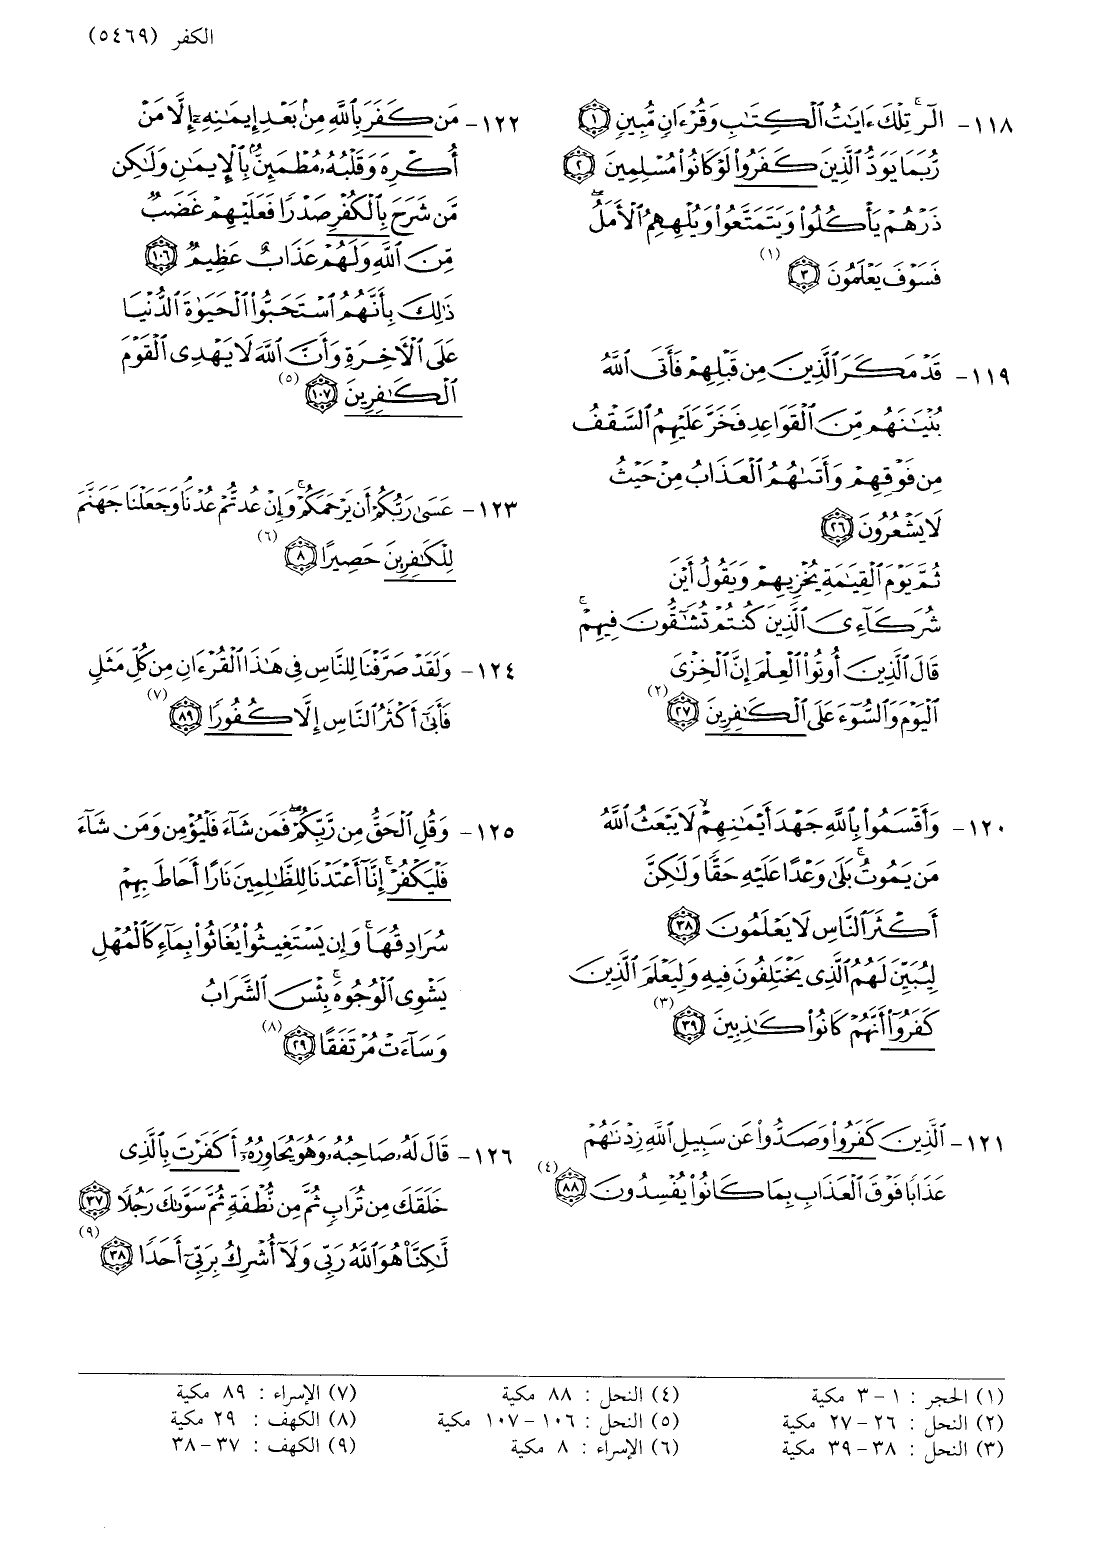 الكفر (٥٤٦٩)
١١٨- الٓر ۚ تِلْكَ ءَايَـٰتُ ٱلْكِتَـٰبِ وَقُرْءَانٍ مُّبِينٍ ﴿١﴾
رُّبَمَا يَوَدُّ ٱلَّذِينَ كَفَرُوا۟ لَوْ كَانُوا۟ مُسْلِمِينَ ﴿٢﴾
ذَرْهُمْ يَأْكُلُوا۟ وَيَتَمَتَّعُوا۟ وَيُلْهِهِمُ ٱلْأَمَلُ ۖ
فَسَوْفَ يَعْلَمُونَ ﴿٣﴾ (١)
١١٩- قَدْ مَكَرَ ٱلَّذِينَ مِن قَبْلِهِمْ فَأَتَى ٱللَّهُ
بُنْيَـٰنَهُم مِّنَ ٱلْقَوَاعِدِ فَخَرَّ عَلَيْهِمُ ٱلسَّقْفُ
مِن فَوْقِهِمْ وَأَتَىٰهُمُ ٱلْعَذَابُ مِنْ حَيْثُ
لَا يَشْعُرُونَ ﴿٢٦﴾
ثُمَّ يَوْمَ ٱلْقِيَـٰمَةِ يُخْزِيهِمْ وَيَقُولُ أَيْنَ
شُرَكَآءِىَ ٱلَّذِينَ كُنتُمْ تُشَـٰٓقُّونَ فِيهِمْ ۚ
قَالَ ٱلَّذِينَ أُوتُوا۟ ٱلْعِلْمَ إِنَّ ٱلْخِزْىَ
ٱلْيَوْمَ وَٱلسُّوٓءَ عَلَى ٱلْكَـٰفِرِينَ ﴿٢٧﴾ (٢)
١٢٠- وَأَقْسَمُوا۟ بِٱللَّهِ جَهْدَ أَيْمَـٰنِهِمْ ۙ لَا يَبْعَثُ ٱللَّهُ
مَن يَمُوتُ ۚ بَلَىٰ وَعْدًا عَلَيْهِ حَقًّا وَلَـٰكِنَّ
أَكْثَرَ ٱلنَّاسِ لَا يَعْلَمُونَ ﴿٣٨﴾
لِيُبَيِّنَ لَهُمُ ٱلَّذِى يَخْتَلِفُونَ فِيهِ وَلِيَعْلَمَ ٱلَّذِينَ
كَفَرُوٓا۟ أَنَّهُمْ كَانُوا۟ كَـٰذِبِينَ ﴿٣٩﴾ (٣)
١٢١- ٱلَّذِينَ كَفَرُوا۟ وَصَدُّوا۟ عَن سَبِيلِ ٱللَّهِ زِدْنَـٰهُمْ
عَذَابًا فَوْقَ ٱلْعَذَابِ بِمَا كَانُوا۟ يُفْسِدُونَ ﴿٨٨﴾ (٤)
١٢٢- مَن كَفَرَ بِٱللَّهِ مِنۢ بَعْدِ إِيمَـٰنِهِۦٓ إِلَّا مَنْ
أُكْرِهَ وَقَلْبُهُۥ مُطْمَئِنٌّۢ بِٱلْإِيمَـٰنِ وَلَـٰكِن
مَّن شَرَحَ بِٱلْكُفْرِ صَدْرًا فَعَلَيْهِمْ غَضَبٌ
مِّنَ ٱللَّهِ وَلَهُمْ عَذَابٌ عَظِيمٌ ﴿١٠٦﴾
ذَٰلِكَ بِأَنَّهُمُ ٱسْتَحَبُّوا۟ ٱلْحَيَوٰةَ ٱلدُّنْيَا
عَلَى ٱلْـَٔاخِرَةِ وَأَنَّ ٱللَّهَ لَا يَهْدِى ٱلْقَوْمَ
ٱلْكَـٰفِرِينَ ﴿١٠٧﴾ (٥)
١٢٣- عَسَىٰ رَبُّكُمْ أَن يَرْحَمَكُمْ ۚ وَإِنْ عُدتُّمْ عُدْنَا ۘ وَجَعَلْنَا جَهَنَّمَ
لِلْكَـٰفِرِينَ حَصِيرًا ﴿٨﴾ (٦)
١٢٤- وَلَقَدْ صَرَّفْنَا لِلنَّاسِ فِى هَـٰذَا ٱلْقُرْءَانِ مِن كُلِّ مَثَلٍ
فَأَبَىٰٓ أَكْثَرُ ٱلنَّاسِ إِلَّا كُفُورًا ﴿٨٩﴾ (٧)
١٢٥- وَقُلِ ٱلْحَقُّ مِن رَّبِّكُمْ ۖ فَمَن شَآءَ فَلْيُؤْمِن وَمَن شَآءَ
فَلْيَكْفُرْ ۚ إِنَّآ أَعْتَدْنَا لِلظَّـٰلِمِينَ نَارًا أَحَاطَ بِهِمْ
سُرَادِقُهَا ۚ وَإِن يَسْتَغِيثُوا۟ يُغَاثُوا۟ بِمَآءٍ كَٱلْمُهْلِ
يَشْوِى ٱلْوُجُوهَ ۚ بِئْسَ ٱلشَّرَابُ
وَسَآءَتْ مُرْتَفَقًا ﴿٢٩﴾ (٨)
١٢٦- قَالَ لَهُۥ صَاحِبُهُۥ وَهُوَ يُحَاوِرُهُۥٓ أَكَفَرْتَ بِٱلَّذِى
خَلَقَكَ مِن تُرَابٍ ثُمَّ مِن نُّطْفَةٍ ثُمَّ سَوَّىٰكَ رَجُلًا ﴿٣٧﴾
لَّـٰكِنَّا۠ هُوَ ٱللَّهُ رَبِّى وَلَآ أُشْرِكُ بِرَبِّىٓ أَحَدًا ﴿٣٨﴾ (٩)
(١) الحجر : ١ - ٣ مكية
(٢) النحل : ٢٦ - ٢٧ مكية
(٣) النحل : ٣٨ - ٣٩ مكية
(٤) النحل : ٨٨ مكية
(٥) النحل : ١٠٦ - ١٠٧ مكية
(٦) الإسراء : ٨ مكية
(٧) الإسراء : ٨٩ مكية
(٨) الكهف : ٢٩ مكية
(٩) الكهف : ٣٧ - ٣٨